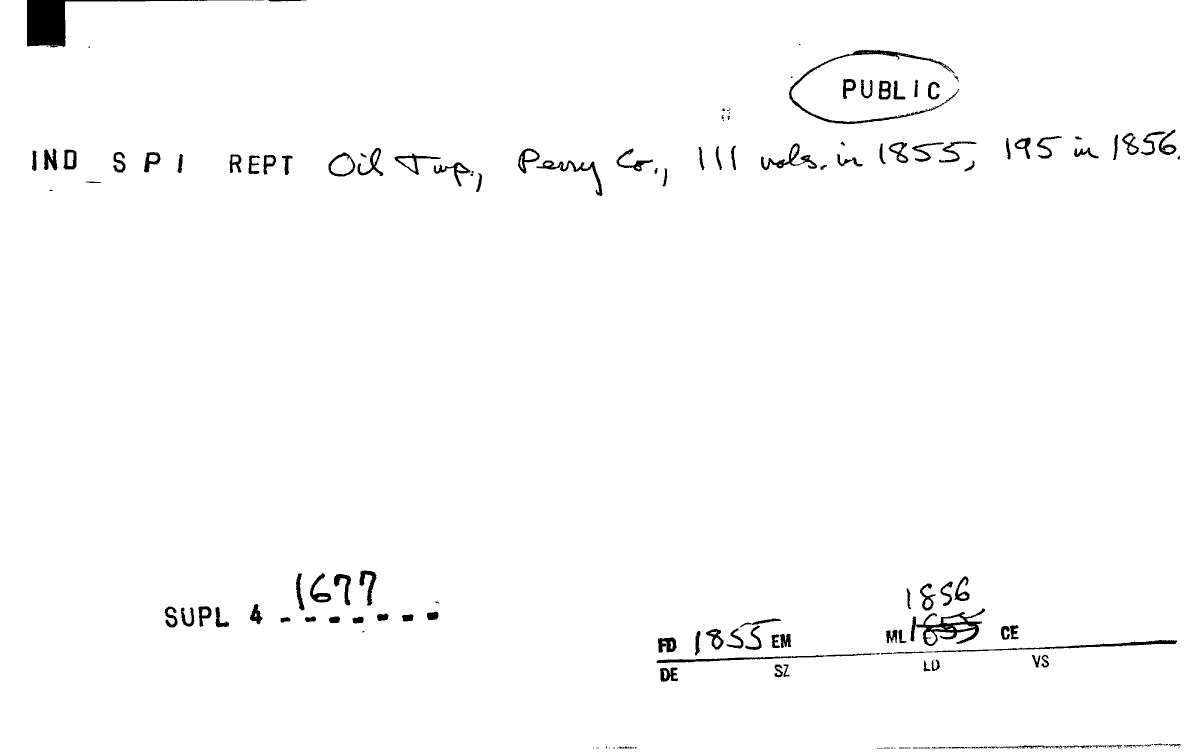 PUBLIC
IND S P I REPT Oil Twp., Perry Co., 111 vols. in 1855, 195 in 1856.
1677
SUPL 4 - - - - - - -
1856
FD 1855 EM ML 1855 CE
DE SZ LD VS